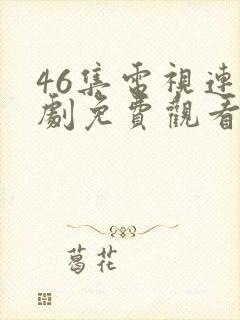 46集電視連
劇免費觀看
葛花